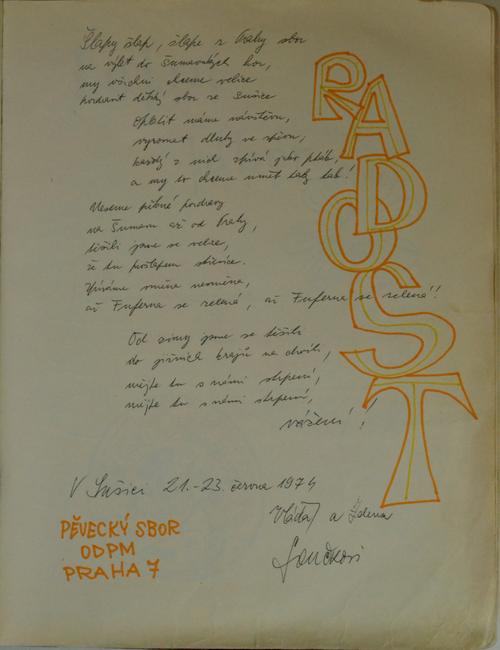 Šlapy šlap, šlape z Prahy sbor
na výlet do Šumavských hor,
my všichni chceme velice
pozdravit dětský sbor ze Sušice
Oplatit máme návštěvu,
vyrovnat dluhy ve zpěvu,
každý z nich zpívá jako pták,
a my to chceme umět taky tak!
Neseme pěkné pozdravy
na Šumavu až od Prahy,
těšili jsme se velice,
že tu
Zpíváme
až Fuferna se zelená, až Fuferna se zelená!!
Od zimy jsme se těšili
do jižních krajů na chvíli,
mějte tu s námi strpení,
mějte tu s námi strpení,
vážení!!
RADOST
V Sušici 21.-23. června 1974
Vláďa a Zdena
Součkovi
PĚVECKÝ SBOR
ODPM
PRAHA 7